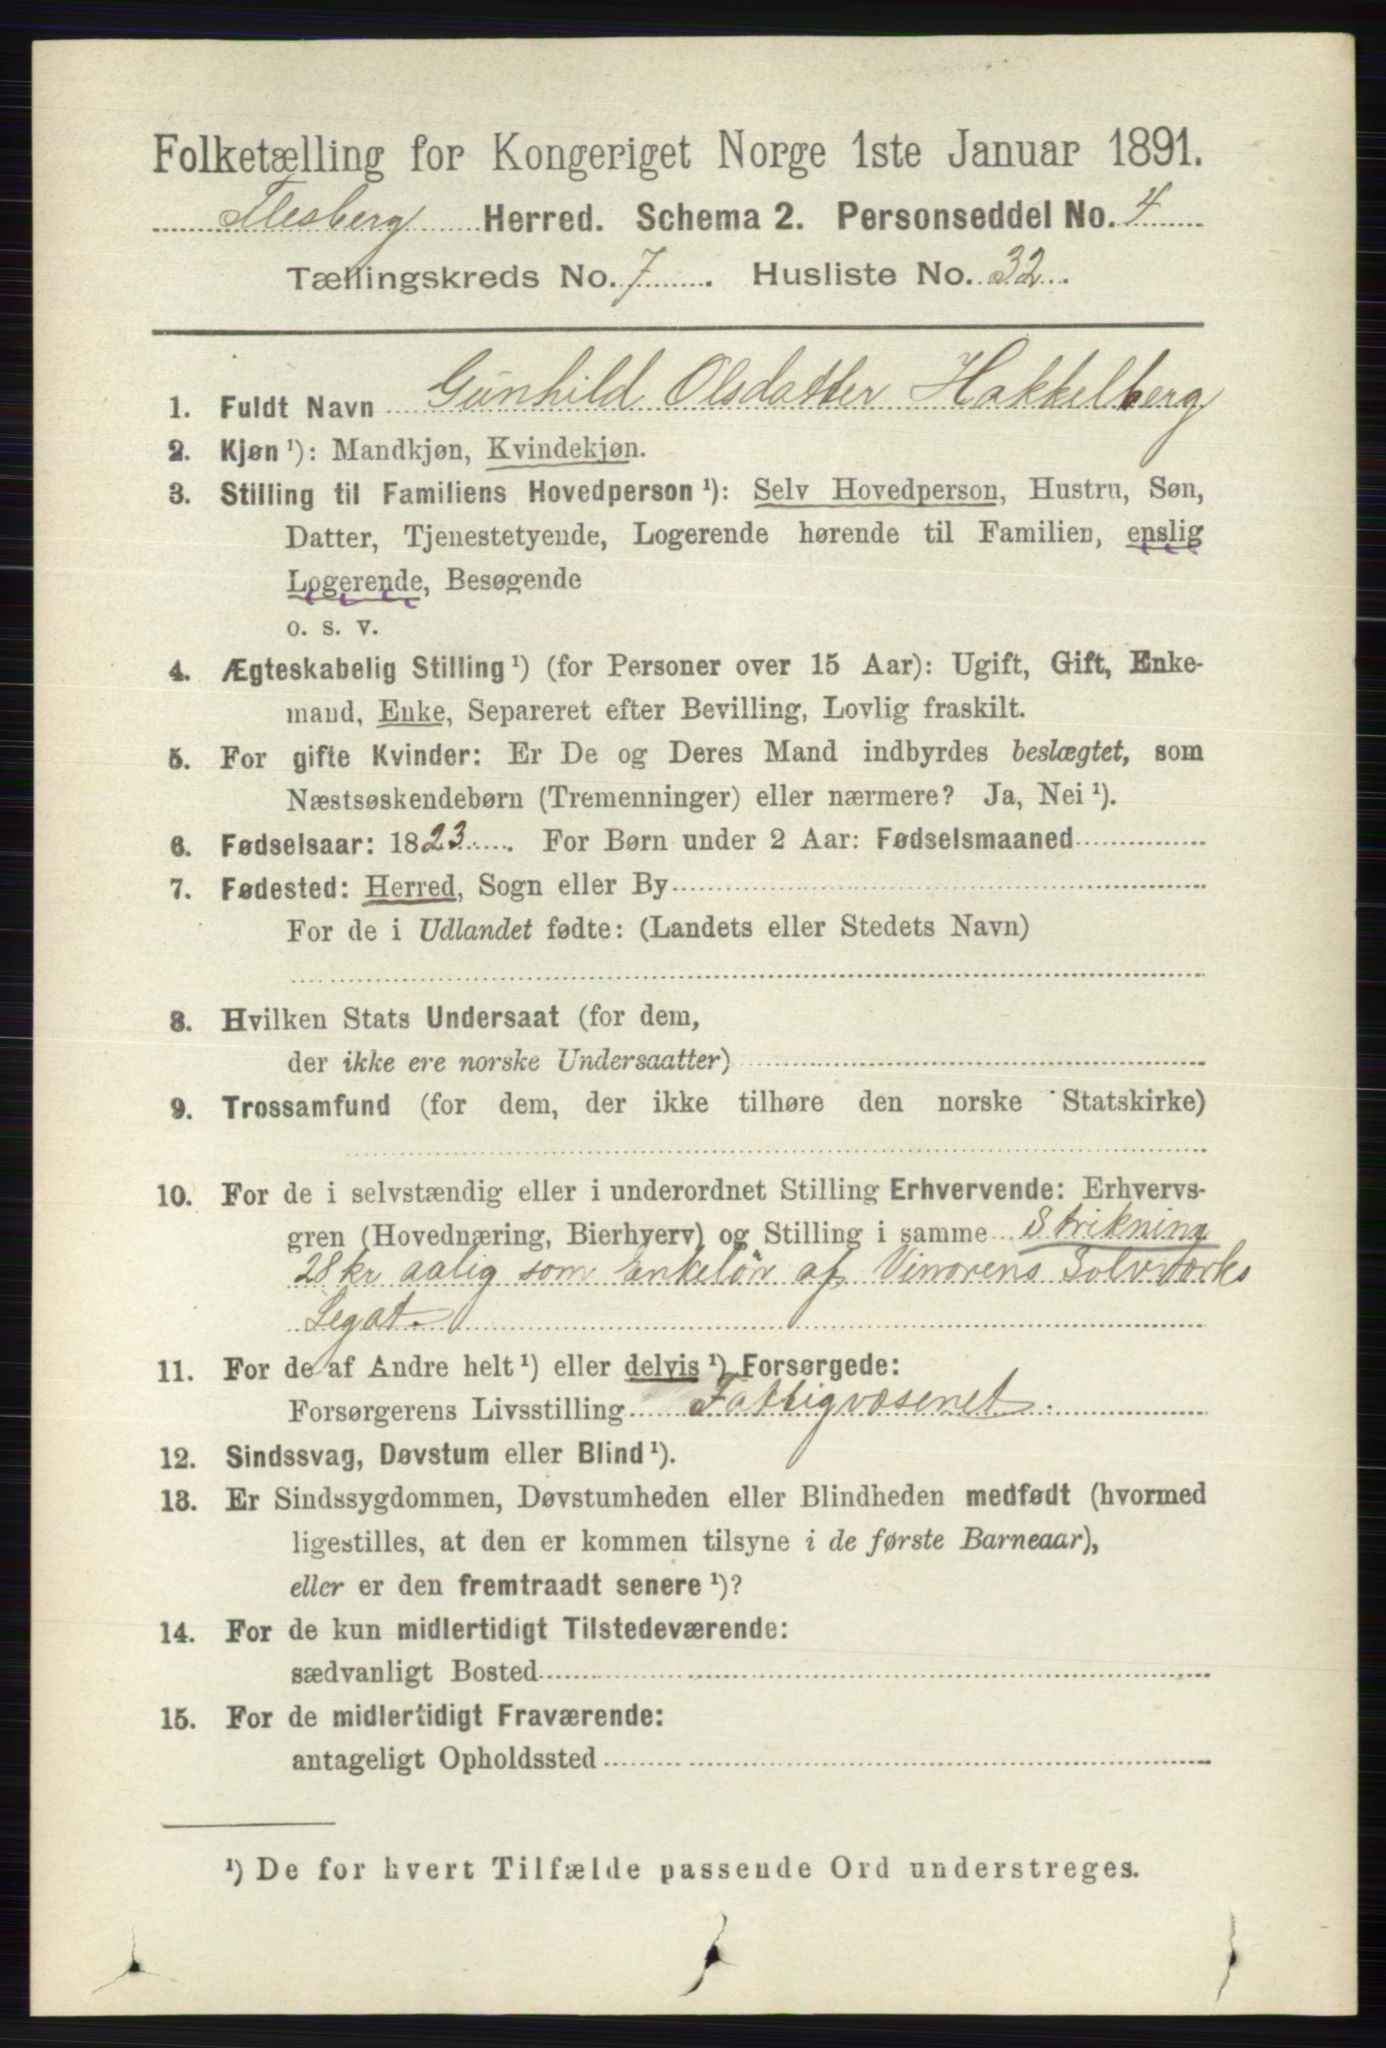 Folketælling for Kongeriget Norge 1ste Januar 1891.
Flesberg Herred. Schema 2. Personseddel No. 4
Tællingskreds No. 7. Husliste No. 32.
1. Fuldt Navn Gunhild Olsdatter Hakkelberg
2. Kjøn ¹): Mandkjøn, Kvindekjøn.
3. Stilling til Familiens Hovedperson ¹): Selv Hovedperson, Hustru, Søn,
Datter, Tjenestetyende, Logerende hørende til Familien, enslig
Logerende, Besøgende
o. s. v.
4. Ægteskabelig Stilling ¹) (for Personer over 15 Aar): Ugift, Gift, Enke-
mand, Enke, Separeret efter Bevilling, Lovlig fraskilt.
5. For gifte Kvinder: Er De og Deres Mand indbyrdes beslægtet, som
Næstsøskendebørn (Tremenninger) eller nærmere? Ja, Nei ¹).
6. Fødselsaar: 1823. For Børn under 2 Aar: Fødselsmaaned
7. Fødested: Herred, Sogn eller By
For de i Udlandet fødte: (Landets eller Stedets Navn)
8. Hvilken Stats Undersaat (for dem,
der ikke ere norske Undersaatter)
9. Trossamfund (for dem, der ikke tilhøre den norske Statskirke)
10. For de i selvstændig eller i underordnet Stilling Erhvervende: Erhvervs-
gren (Hovednæring, Bierhverv) og Stilling i samme Strikning
28 kr aalig som Enkelön af Vinorens Solvværks
Legat.
11. For de af Andre helt ¹) eller delvis ¹) Forsørgede:
Forsørgerens Livsstilling Fattigvæsenet.
12. Sindssvag, Døvstum eller Blind ¹).
13. Er Sindssygdommen, Døvstumheden eller Blindheden medfødt (hvormed
ligestilles, at den er kommen tilsyne i de første Barneaar),
eller er den fremtraadt senere ¹)?
14. For de kun midlertidigt Tilstedeværende:
sædvanligt Bosted
15. For de midlertidigt Fraværende:
antageligt Opholdssted
¹) De for hvert Tilfælde passende Ord understreges.